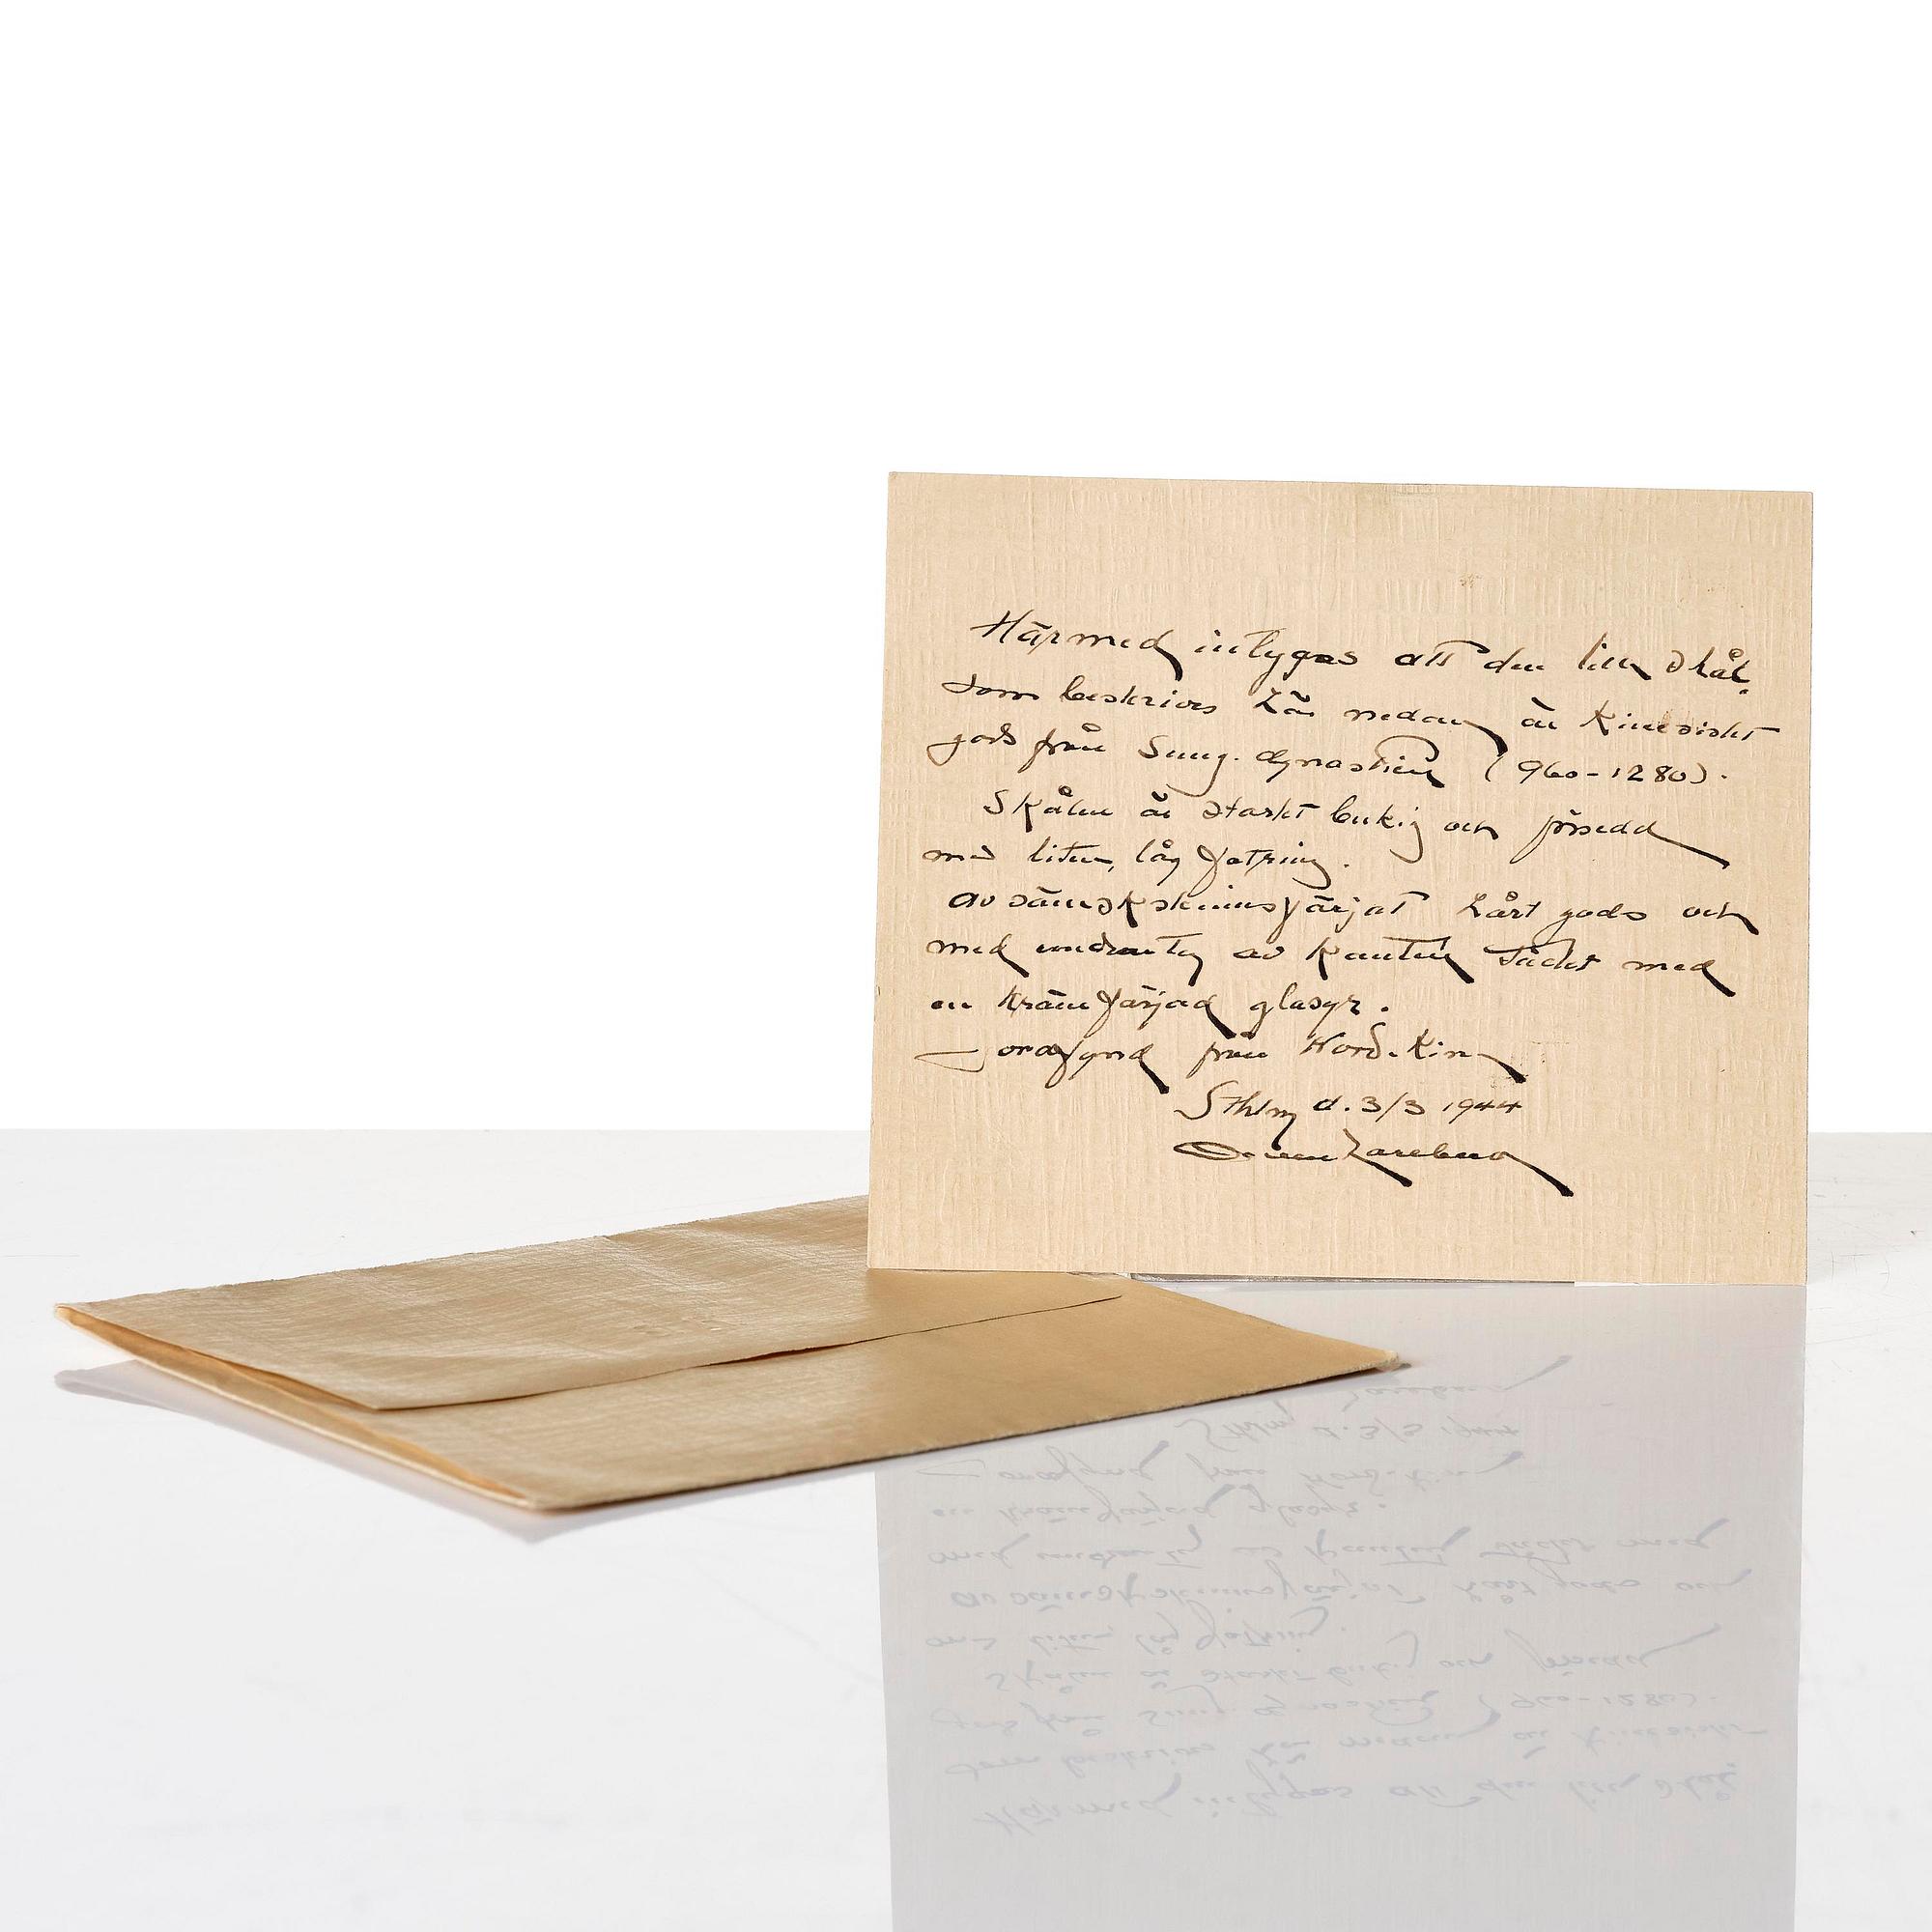 Härmed intygas att den lilla skål,
som beskrives här nedan är Kinesiskt
gods från Sung-dynastien (960-1280).
Skålen är starkt bukig och försedd
med liten, låg fotring.
av sämskskinnsfärjat hårt gods och
med undantag av kanten täckt med
en krämfärjad glasyr.
Jordfynd från Nord-Kina
Sthlm d. 3/3 1944